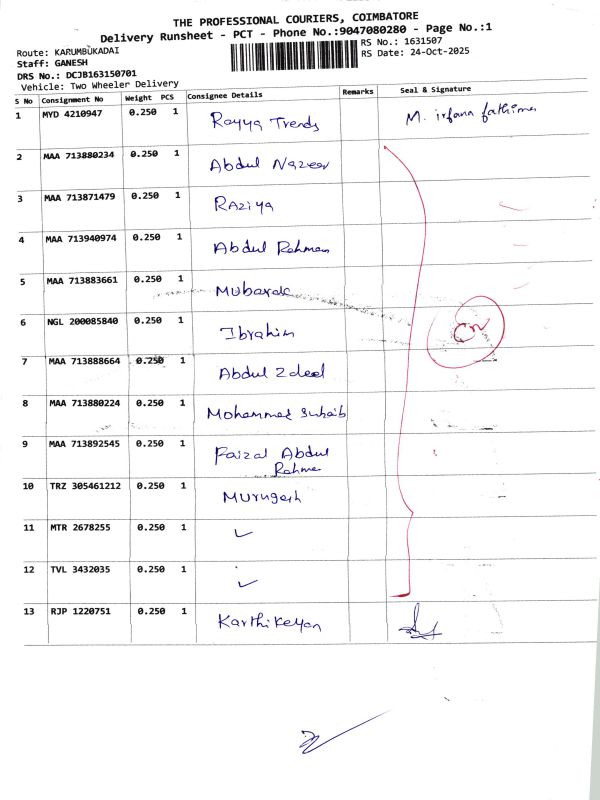 THE PROFESSIONAL COURIERS, COIMBATORE
Delivery Runsheet - PCT - Phone No.:9047080280 - Page No.:1
Route: KARUMBUKADAI
Staff: GANESH
DRS No.: DCJB163150701
Vehicle: Two Wheeler Delivery
RS No.: 1631507
RS Date: 24-Oct-2025
S No Consignment No Weight PCS Consignee Details Remarks Seal & Signature
1 MYD 4210947 0.250 1 Rayya Trends M. irfana fathima
2 MAA 713880234 0.250 1 Abdul Nazeer
3 MAA 713871479 0.250 1 Raziya
4 MAA 713940974 0.250 1 Abdul Rehman
5 MAA 713883661 0.250 1 Mubarak
6 NGL 200085840 0.250 1 Ibrahim
7 MAA 713888664 0.250 1 Abdul
8 MAA 713880224 0.250 1 Mohammed Suhaib
9 MAA 713892545 0.250 1 Faizal Abdul
Rahma
10 TRZ 305461212 0.250 1 Murugesh
11 MTR 2678255 0.250 1 ✓
12 TVL 3432035 0.250 1 ✓
13 RJP 1220751 0.250 1 Karthikeyan